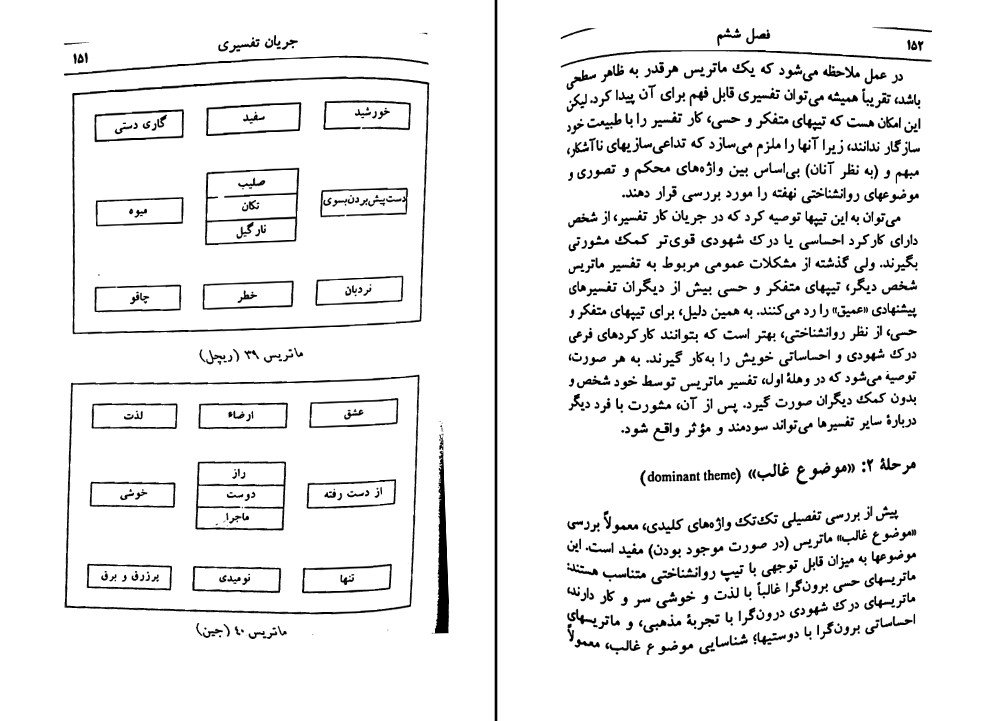 جریان تفسیری
۱۵۱
خورشید
سفید
گاری دستی
صلیب
تکان
نارگیل
دست‌پیش‌بردن‌بسوی
میوه
نردبان
خطر
چاقو
ماتریس ۳۹ (ریچل)
عشق
ارضاء
لذت
راز
دوست
ماجرا
از دست رفته
خوشی
تنها
نومیدی
پرزرق و برق
ماتریس ۴۰ (جین)
فصل ششم
۱۵۲
در عمل ملاحظه می‌شود که یک ماتریس هرقدر به ظاهر سطحی
باشد، تقریباً همیشه می‌توان تفسیری قابل فهم برای آن پیدا کرد. لیکن
این امکان هست که تیپهای متفکر و حسی، کار تفسیر را با طبیعت خود
سازگار ندانند، زیرا آنها را ملزم می‌سازد که تداعی‌سازیهای ناآشکار،
مبهم و (به نظر آنان) بی‌اساس بین واژه‌های محکم و تصوری و
موضوعهای روانشناختی نهفته را مورد بررسی قرار دهند.
می‌توان به این تیپها توصیه کرد که در جریان کار تفسیر، از شخص
دارای کارکرد احساسی یا درک شهودی قوی‌تر کمک مشورتی
بگیرند. ولی گذشته از مشکلات عمومی مربوط به تفسیر ماتریس
شخص دیگر، تیپهای متفکر و حسی بیش از دیگران تفسیرهای
پیشنهادی «عمیق» را رد می‌کنند. به همین دلیل، برای تیپهای متفکر و
حسی، از نظر روانشناختی، بهتر است که بتوانند کارکردهای فرعی
درک شهودی و احساساتی خویش را به‌کار گیرند. به هر صورت،
توصیه می‌شود که در وهلهٔ اول، تفسیر ماتریس توسط خود شخص و
بدون کمک دیگران صورت گیرد. پس از آن، مشورت با فرد دیگر
دربارهٔ سایر تفسیرها می‌تواند سودمند و مؤثر واقع شود.
مرحلهٔ ۲: «موضوع غالب» (dominant theme)
پیش از بررسی تفصیلی تک‌تک واژه‌های کلیدی، معمولاً بررسی
«موضوع غالب» ماتریس (در صورت موجود بودن) مفید است. این
موضوعها به میزان قابل توجهی با تیپ روانشناختی متناسب هستند:
ماتریسهای حسی برون‌گرا غالباً با لذت و خوشی سر و کار دارند،
ماتریسهای درک شهودی درون‌گرا با تجربهٔ مذهبی، و ماتریسهای
احساساتی برون‌گرا با دوستیها؛ شناسایی موضوع غالب، معمولاً